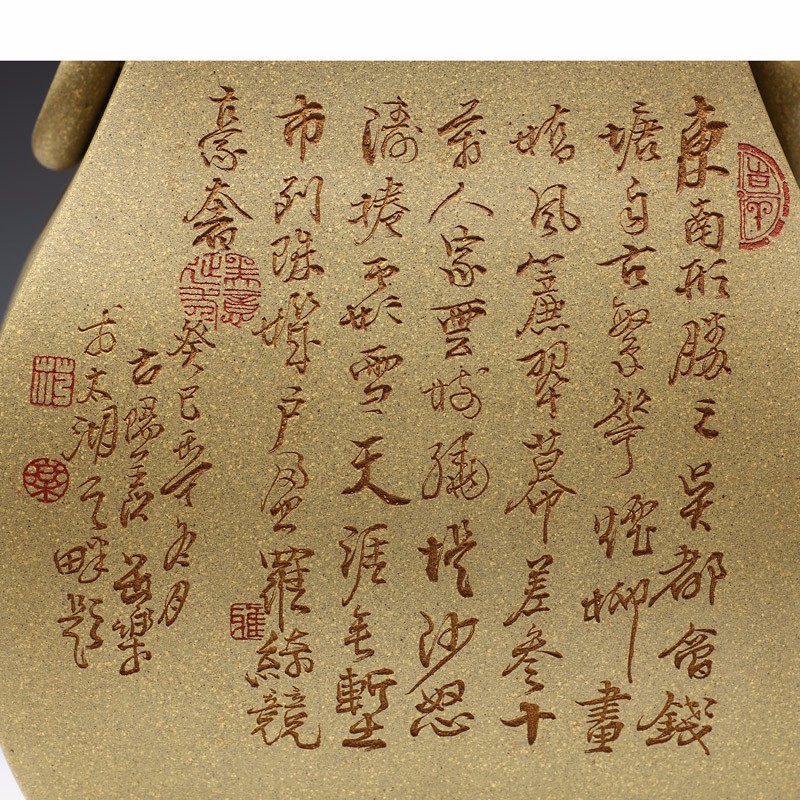 東南形勝三吳都會錢
塘自古繁華煙柳畫
橋風簾翠幕差參十
萬人家雲樹繞堤沙怒
濤捲霜雪天涯無塹
市列珠璣戶盈羅綺競
豪奢
癸巳年冬月
古陽羨樂
於太湖之畔題
雅